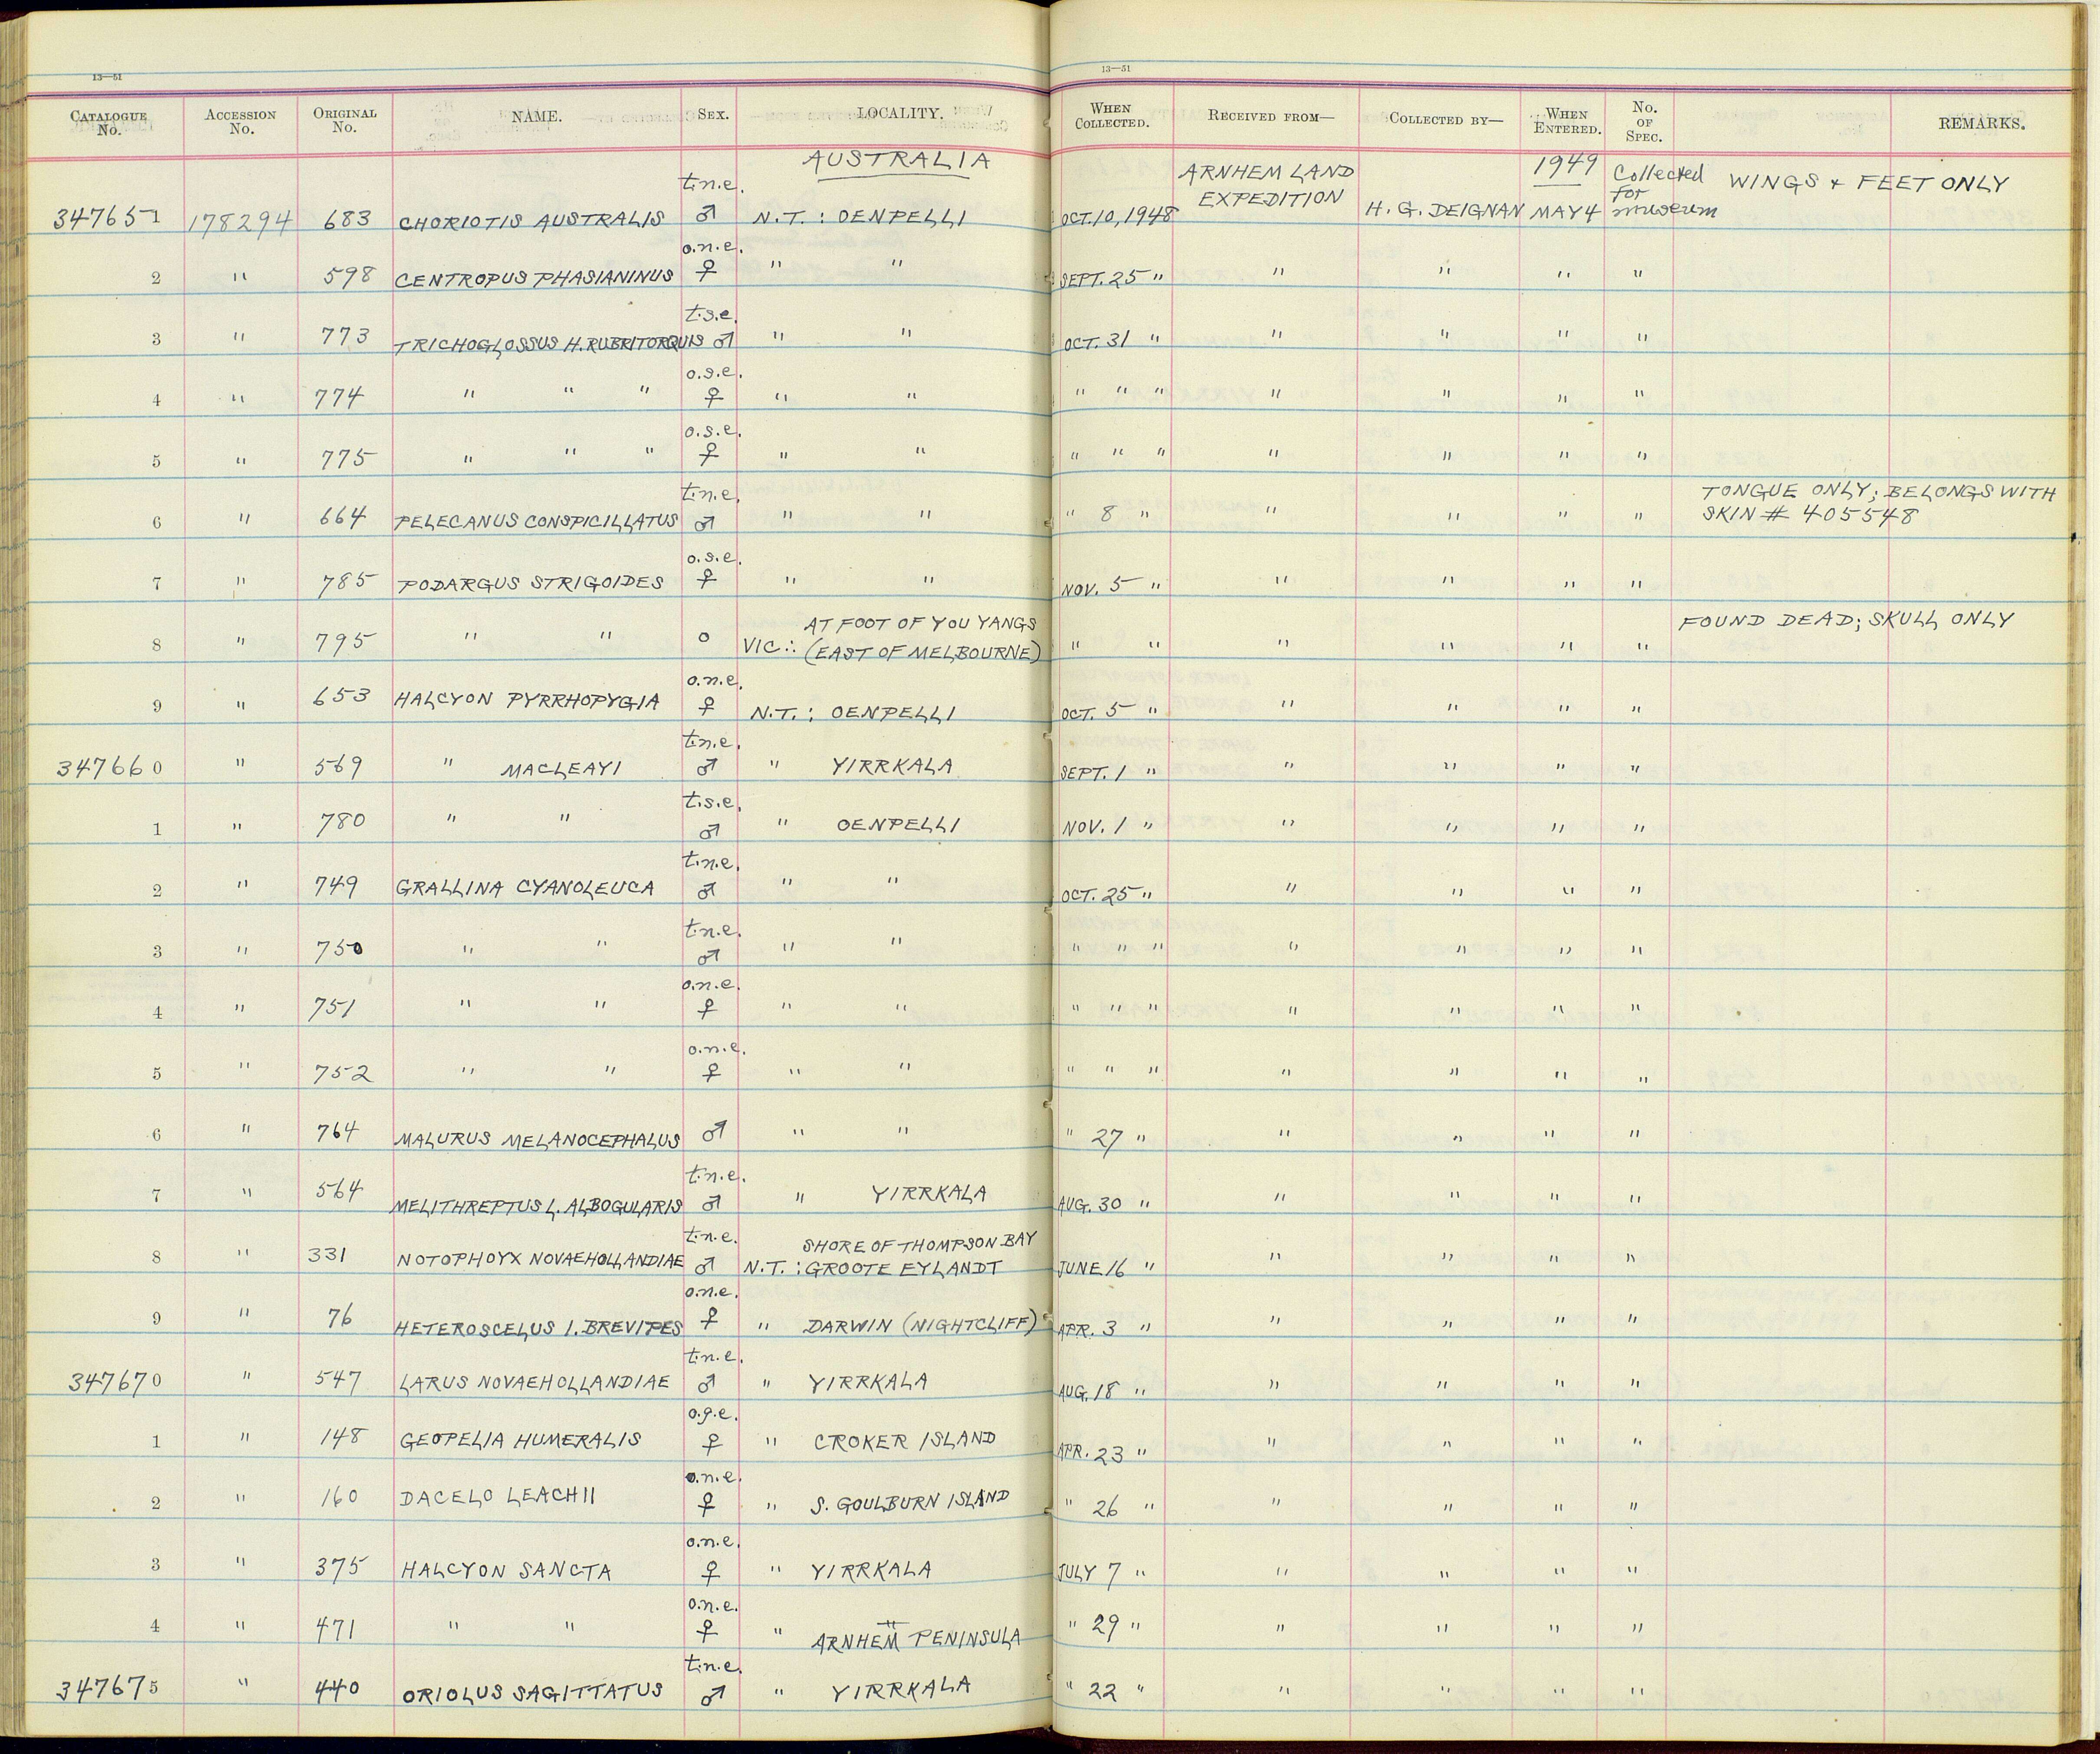 13—51 13—51
CATALOGUE No. ACCESSION No. ORIGINAL No. NAME. SEX. LOCALITY. WHEN COLLECTED. RECEIVED FROM— COLLECTED BY— WHEN ENTERED. No. OF SPEC. REMARKS.
AUSTRALIA
347651 178294 683 CHORIOTIS AUSTRALIS t.n.e. ♂ N.T.: OENPELLI OCT. 10, 1948 ARNHEM LAND EXPEDITION H. G. DEIGNAN 1949 MAY 4 Collected for museum WINGS & FEET ONLY
2 " 598 CENTROPUS PHASIANINUS o.n.e. ♀ " " SEPT. 25 " " " " "
3 " 773 TRICHOGLOSSUS H. RUBRITORQUIS t.s.e. ♂ " " OCT. 31 " " " " "
4 " 774 " " " o.s.e. ♀ " " " " " " " " "
5 " 775 " " " o.s.e. ♀ " " " " " " " " "
6 " 664 PELECANUS CONSPICILLATUS t.n.e. ♂ " " " 8 " " " " " TONGUE ONLY; BELONGS WITH SKIN # 405548
7 " 785 PODARGUS STRIGOIDES o.s.e. ♀ " " NOV. 5 " " " " "
8 " 795 " " o VIC.: AT FOOT OF YOU YANGS (EAST OF MELBOURNE) " " " " " " FOUND DEAD; SKULL ONLY
9 " 653 HALCYON PYRRHOPYGIA o.n.e. ♀ N.T.: OENPELLI OCT. 5 " " " " "
347660 " 569 " MACLEAYI t.n.e. ♂ " YIRRKALA SEPT. 1 " " " " "
1 " 780 " " t.s.e. ♂ " OENPELLI NOV. 1 " " " " "
2 " 749 GRALLINA CYANOLEUCA t.n.e. ♂ " " OCT. 25 " " " " "
3 " 750 " " t.n.e. ♂ " " " " " " " " "
4 " 751 " " o.n.e. ♀ " " " " " " " " "
5 " 752 " " o.n.e. ♀ " " " " " " " " "
6 " 764 MALURUS MELANOCEPHALUS ♂ " " " 27 " " " " "
7 " 564 MELITHREPTUS L. ALBOGULARIS t.n.e. ♂ " YIRRKALA AUG. 30 " " " " "
8 " 331 NOTOPHOYX NOVAEHOLLANDIAE t.n.e. ♂ N.T.: SHORE OF THOMPSON BAY GROOTE EYLANDT JUNE 16 " " " " "
9 " 76 HETEROSCELUS I. BREVIPES o.n.e. ♀ " DARWIN (NIGHTCLIFF) APR. 3 " " " " "
347670 " 547 LARUS NOVAEHOLLANDIAE t.n.e. ♂ " YIRRKALA AUG. 18 " " " " "
1 " 148 GEOPELIA HUMERALIS o.g.e. ♀ " CROKER ISLAND APR. 23 " " " " "
2 " 160 DACELO LEACHII o.n.e. ♀ " S. GOULBURN ISLAND " 26 " " " " "
3 " 375 HALCYON SANCTA o.n.e. ♀ " YIRRKALA JULY 7 " " " " "
4 " 471 " " o.n.e. ♀ " ARNHEM PENINSULA " 29 " " " " "
347675 " 440 ORIOLUS SAGITTATUS t.n.e. ♂ " YIRRKALA " 22 " " " " "